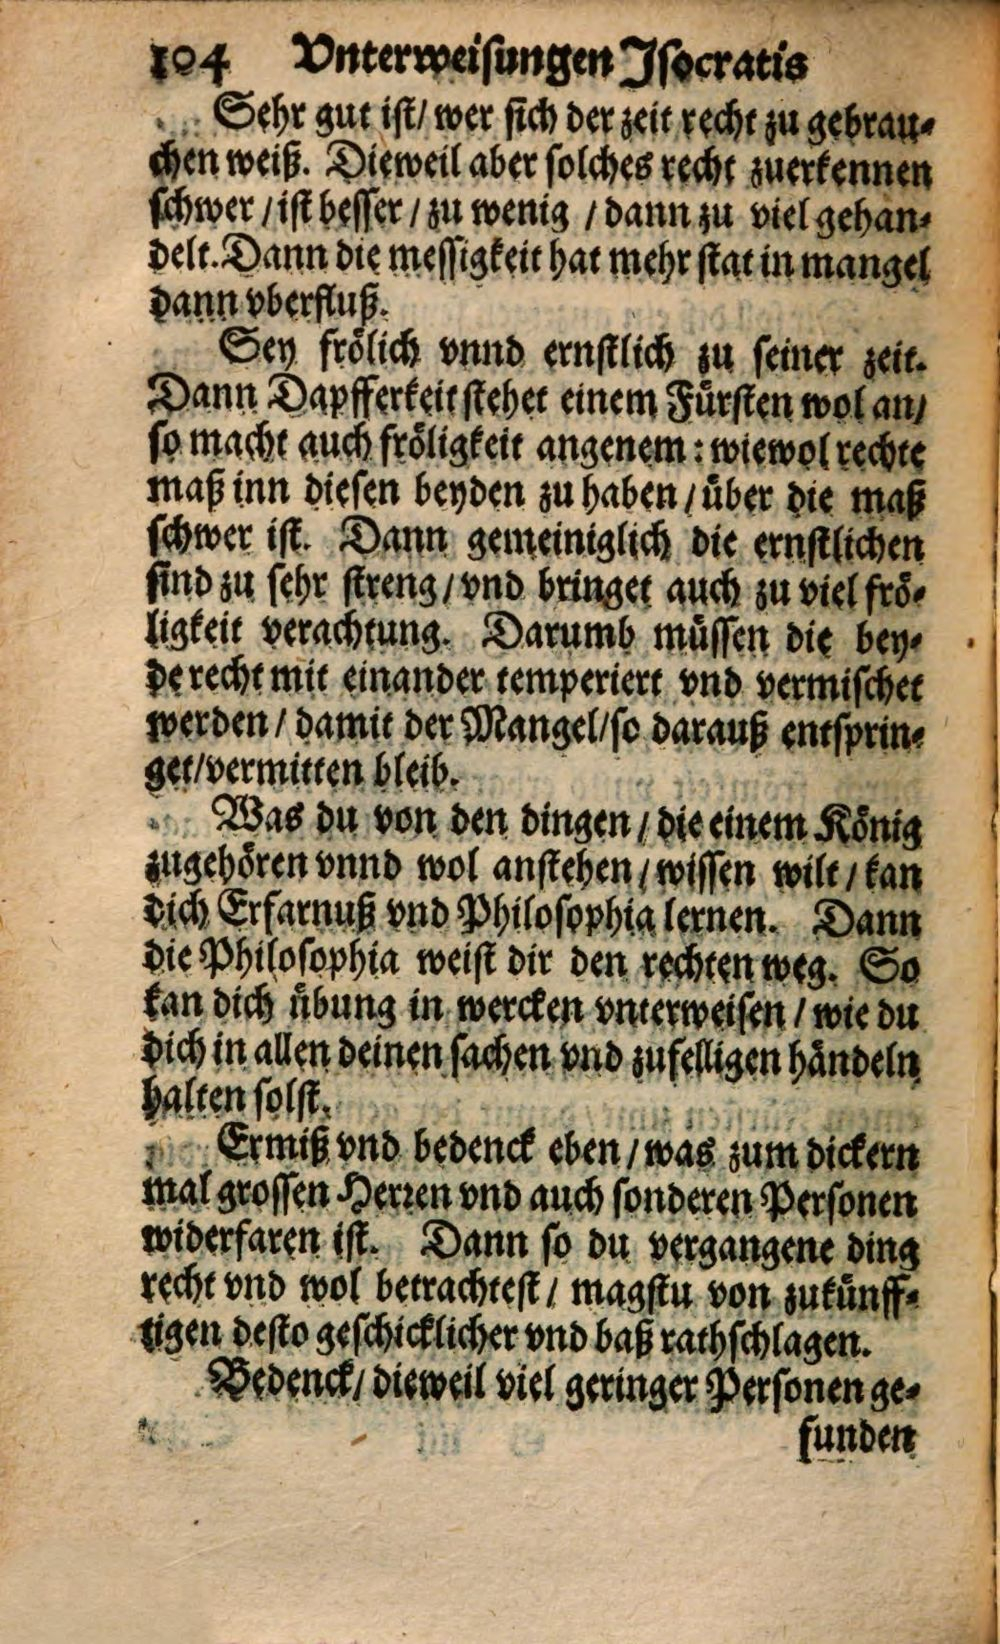 104 Vnterweisungen Jsocratis
Sehr gut ist/ wer sich der zeit recht zu gebrau-
chen weiß. Dieweil aber solches recht zuerkennen
schwer / ist besser / zu wenig / dann zu viel gehan-
delt. Dann die messigkeit hat mehr stat in mangel
dann vberfluß.
Sey frölich vnnd ernstlich zu seiner zeit.
Dann Dapfferkeit stehet einem Fürsten wol an/
so macht auch fröligkeit angenem: wiewol rechte
maß inn diesen beyden zu haben / über die maß
schwer ist. Dann gemeiniglich die ernstlichen
sind zu sehr streng / vnd bringet auch zu viel frö-
ligkeit verachtung. Darumb müssen die bey-
de recht mit einander temperiert vnd vermischet
werden / damit der Mangel/so darauß entsprin-
get/vermitten bleib.
Was du von den dingen / die einem König
zugehören vnnd wol anstehen / wissen wilt / kan
dich Erfarnuß vnd Philosophia lernen. Dann
die Philosophia weist dir den rechten weg. So
kan dich übung in wercken vnterweisen / wie du
dich in allen deinen sachen vnd zufelligen händeln
halten solst.
Ermiß vnd bedenck eben / was zum dickern
mal grossen Herren vnd auch sonderen Personen
widerfaren ist. Dann so du vergangene ding
recht vnd wol betrachtest / magstu von zukünff-
tigen desto geschicklicher vnd baß rathschlagen.
Bedenck/ dieweil viel geringer Personen ge-
funden